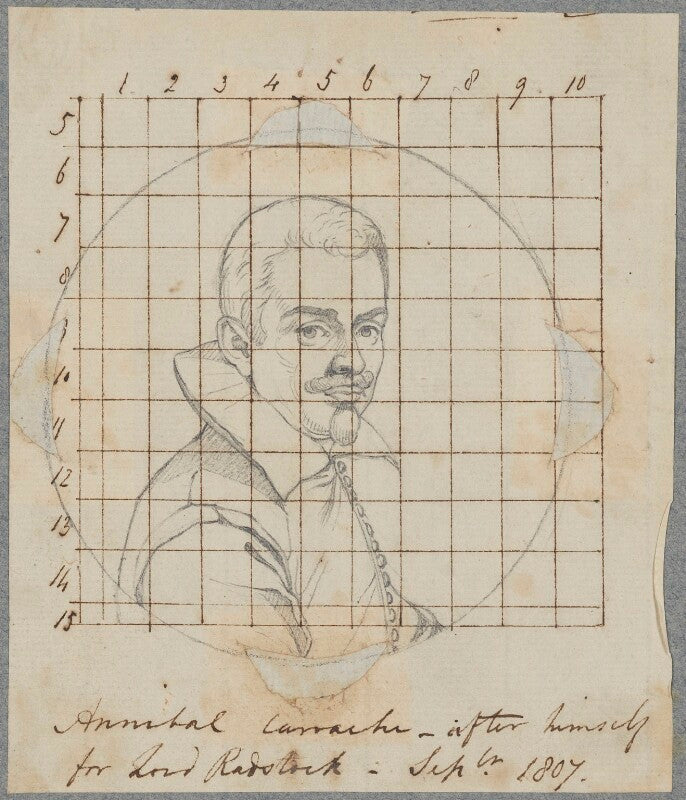 1 2 3 4 5 6 7 8 9 10
5
6
7
8
9
10
11
12
13
14
15
Annibal Carrache - after himself
for Lord Radstock - Sepbr 1807.